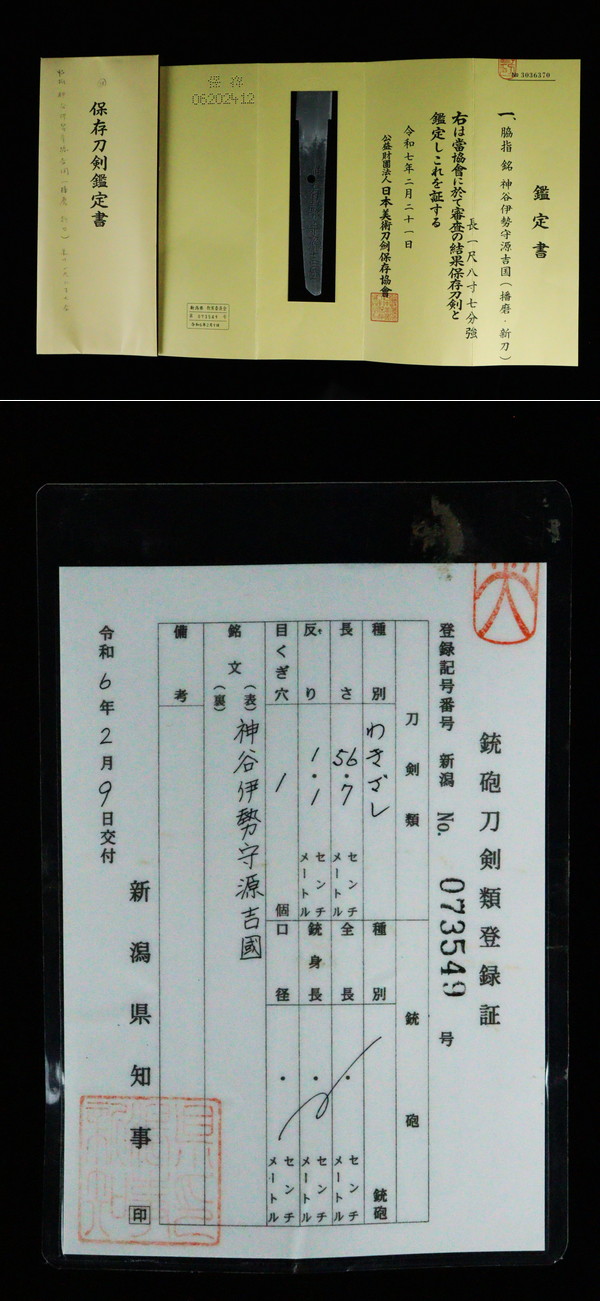 № 3036370
鑑定書
一、脇指 銘 神谷伊勢守源吉国(播磨・新刀)
長一尺八寸七分強
右は當協會に於て審査の結果保存刀剣と
鑑定しこれを証する
令和七年二月二十一日
公益財團法人日本美術刀剣保存協會
保存
06202412
保存刀剣鑑定書
銃砲刀剣類登録証
登録記号番号 新潟 No. 073549 号
刀剣類
銃砲
種別 わきざし
種別
銃砲
長さ 56.7 センチメートル
全長 ・ センチメートル
反り 1.1 センチメートル
銃身長 ・ センチメートル
目くぎ穴 1 個
口径 ・ センチメートル
銘文 (表) 神谷伊勢守源吉國
(裏)
備考
令和6年2月9日交付
新潟県知事 印